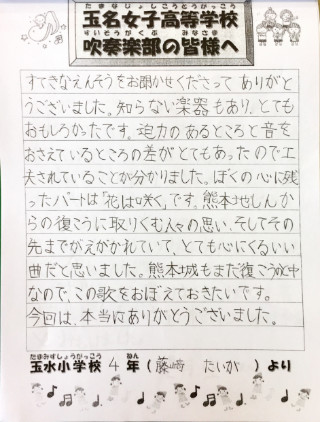 たまなじょしこうとうがっこう
玉名女子高等学校
すいそうがくぶ みなさま
吹奏楽部の皆様へ
すてきなえんそうをお聞かせくださって ありがと
うございました。知らない楽器もあり、とても
おもしろかったです。迫力の あるところと音を
おさえているところの差がとてもあったので工
夫されていることが分かりました。ぼくの心に残
ったパートは「花は咲く」です。熊本地しんか
らの復こうに取りくむ人々の思い、そしてその
先までがえがかれていて、とても心にくるいい
曲だと思いました。熊本城もまだ復こう中
なので、この歌をおぼえておきたいです。
今回は、本当にありがとうございました。
たまみずしょうがっこう ねん
玉水小学校 4 年 ( 藤﨑 たいが ) より